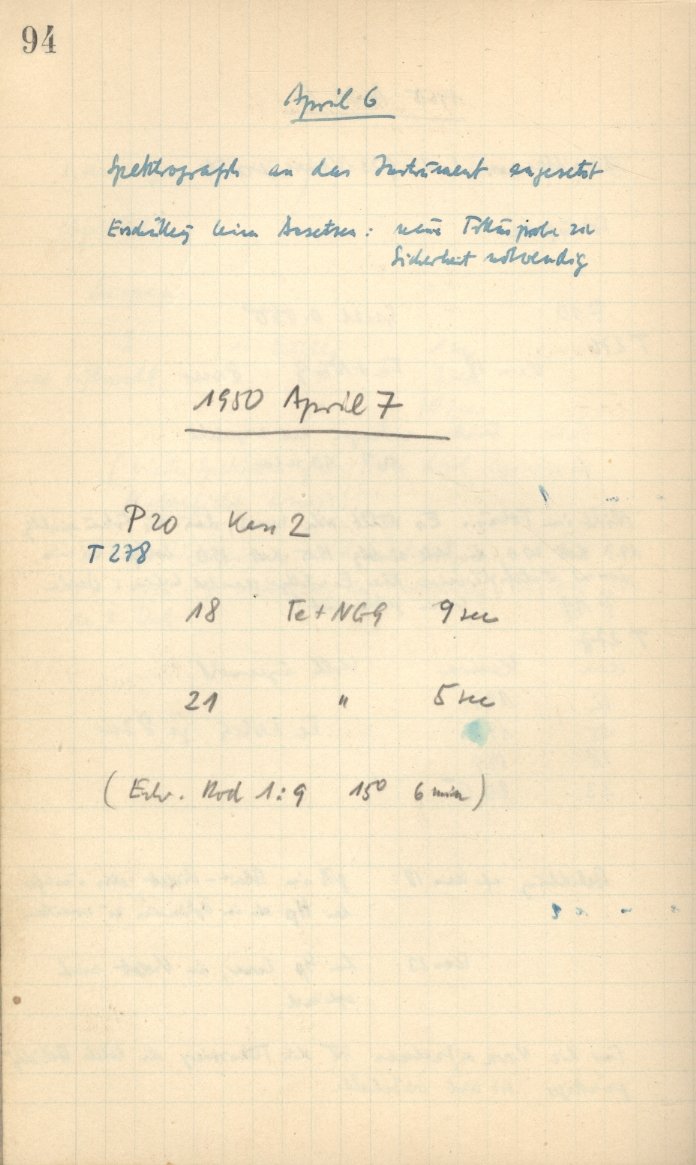 94
April 6
Spektrograph an das Instrument angesetzt
Erschütterg beim Ansetzen: neue Fokusprobe zur
Sicherheit notwendig
1950 April 7
P20 Kass 2
T 278
18 Te+NG9 9 sec
21 " 5 sec
( Entw. Rod 1:9 15° 6 min )